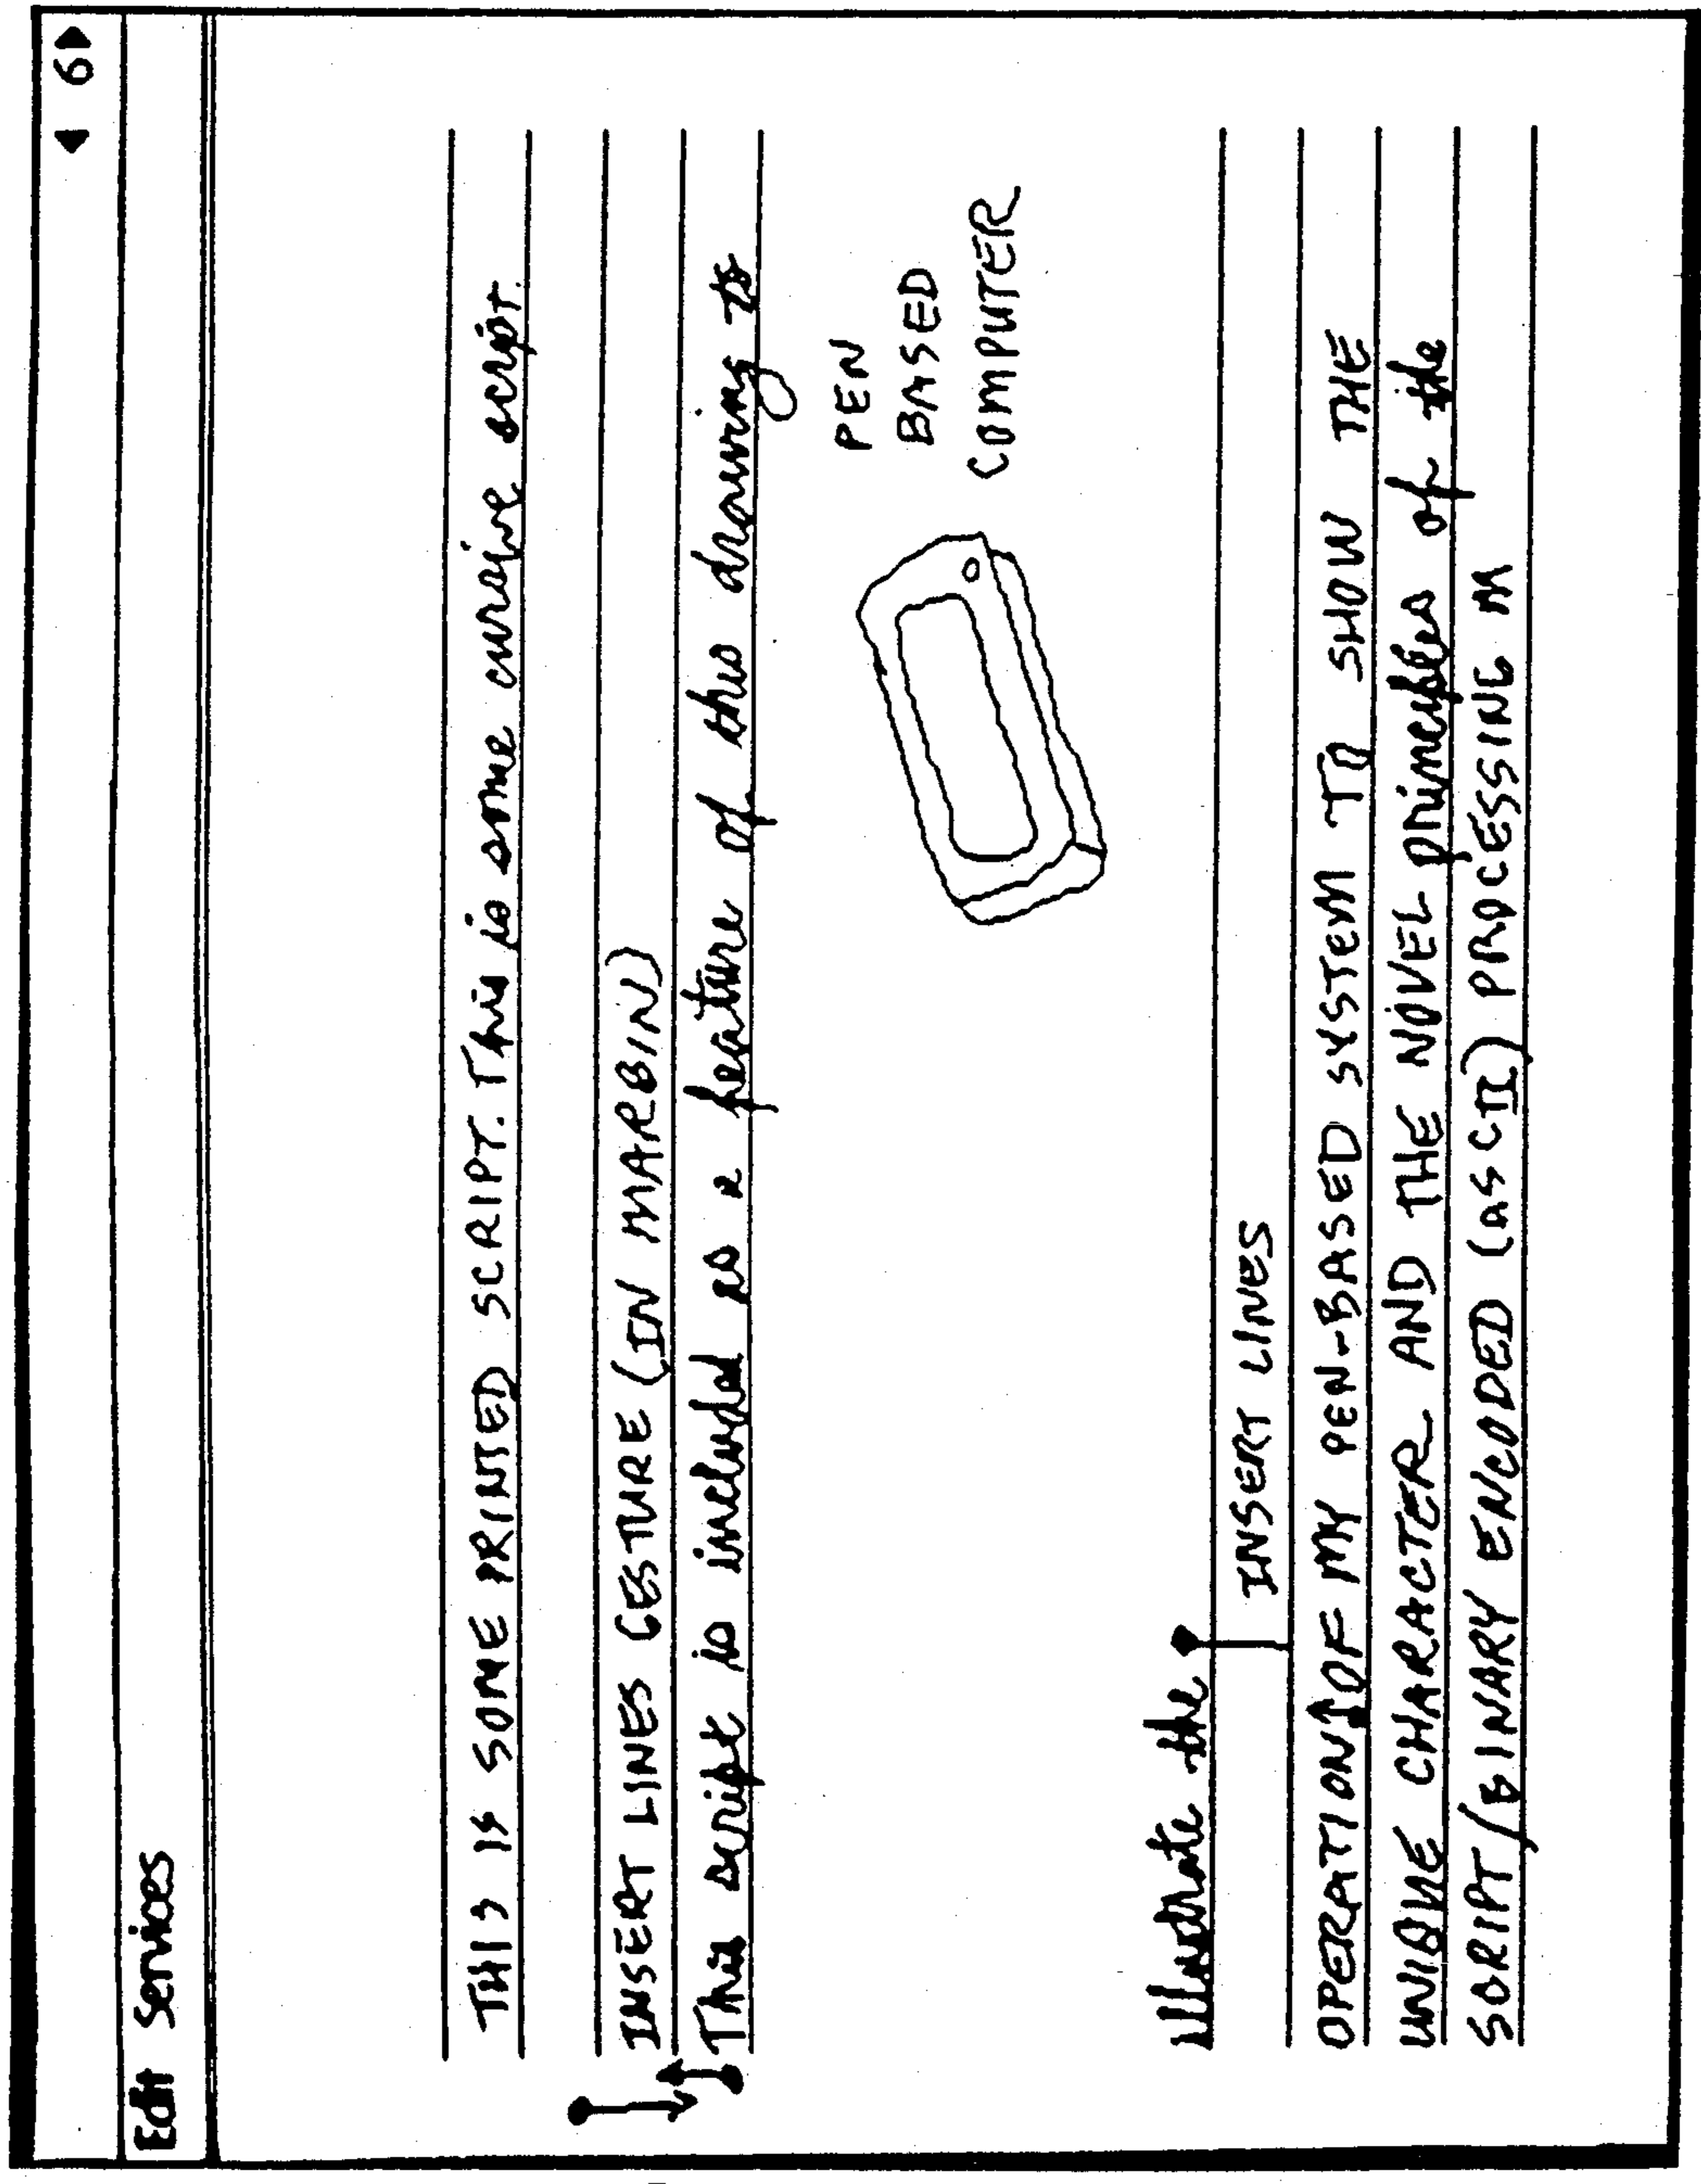 ◀ 6 ▶
Edit Services
THIS IS SOME PRINTED SCRIPT. This is some cursive script.
INSERT LINES GESTURE (IN MARGIN)
This script is included as a feature of this drawing to
PEN
BASED
COMPUTER
illustrate the
INSERT LINES
OPERATION OF MY PEN-BASED SYSTEM TO SHOW THE
UNIQUE CHARACTER AND THE NOVEL principles of the
SCRIPT/BINARY ENCODED (ASCII) PROCESSING M